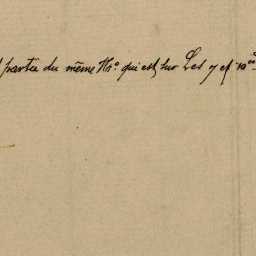 partie du même No. qui est sur Les y et 10